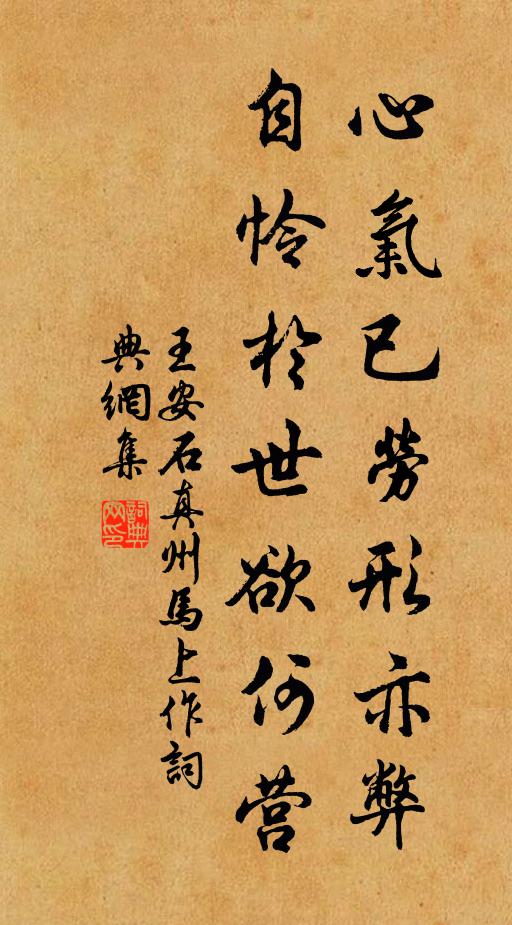 心氣已勞形亦弊
自怜於世欲何营
王安石真州馬上作詞
典網集
詞典
网印